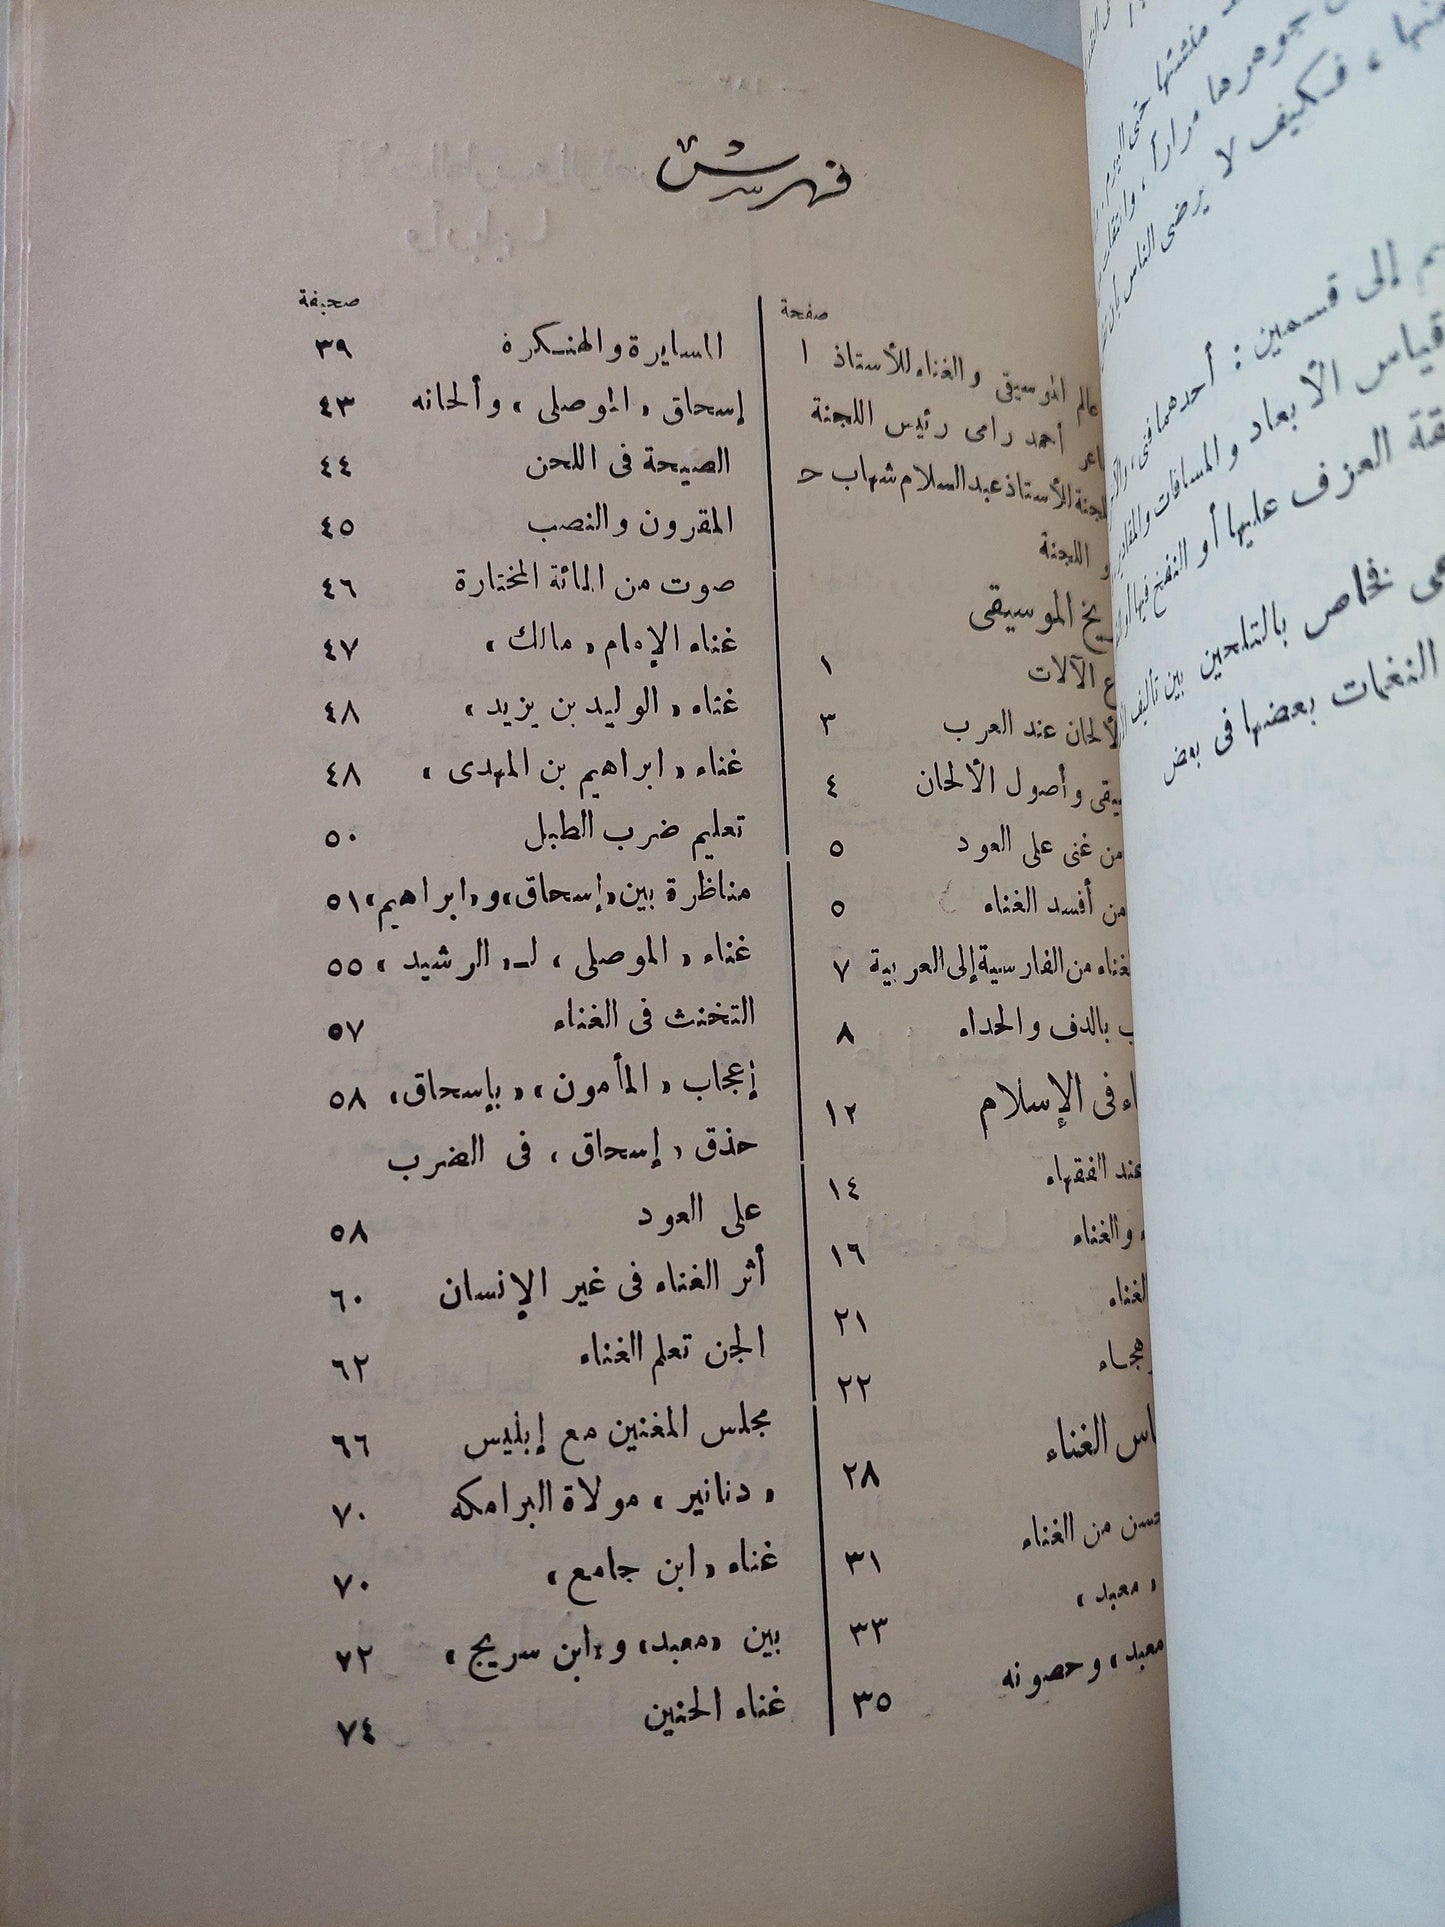 فهرس
صفحة
عالم الموسيقى والغناء للأستاذ ١
أحمد رامى رئيس اللجنة
للأستاذ عبد السلام شهاب ح
اللجنة
الموسيقى
الآلات ١
الألحان عند العرب ٣
وأصول الألحان ٤
من غنى على العود ٥
من أفسد الغناء ٥
من الفارسية إلى العربية ٧
بالدف والحداء ٨
فى الإسلام ١٢
عند الفقهاء ١٤
والغناء ١٦
الغناء ٢١
٢٢
الغناء ٢٨
من الغناء ٣١
« معبد » ٣٣
معبد » وحصونه ٣٥
صحيفة
المسايرة والهنكرة ٣٩
إسحاق « الموصلى » وألحانه ٤٣
الصيحة فى اللحن ٤٤
المقرون والنصب ٤٥
صوت من المائة المختارة ٤٦
غناء الإمام « مالك » ٤٧
غناء « الوليد بن يزيد » ٤٨
غناء « ابراهيم بن المهدى » ٤٨
تعليم ضرب الطبل ٥٠
مناظرة بين « إسحاق » و « ابراهيم » ٥١
غناء « الموصلى » لـ « الرشيد » ٥٥
التخنث فى الغناء ٥٧
إعجاب « المأمون » « بإسحاق » ٥٨
حذق « إسحاق » فى الضرب
على العود ٥٨
أثر الغناء فى غير الإنسان ٦٠
الجن تعلم الغناء ٦٢
مجلس المغنين مع إبليس ٦٦
« دنانير » مولاة البرامكه ٧٠
غناء « ابن جامع » ٧٠
بين « معبد » و « ابن سريج » ٧٢
غناء الحنين ٧٤
جوهرها مراراً ،
فكيف لا يرضى الناس
إلى قسمين : أحدهما فنى ،
قياس الأبعاد والمسافات
العزف عليها أو النفخ فيها أو
فخاص بالتلحين بين تأليف
النغمات بعضها فى بعض